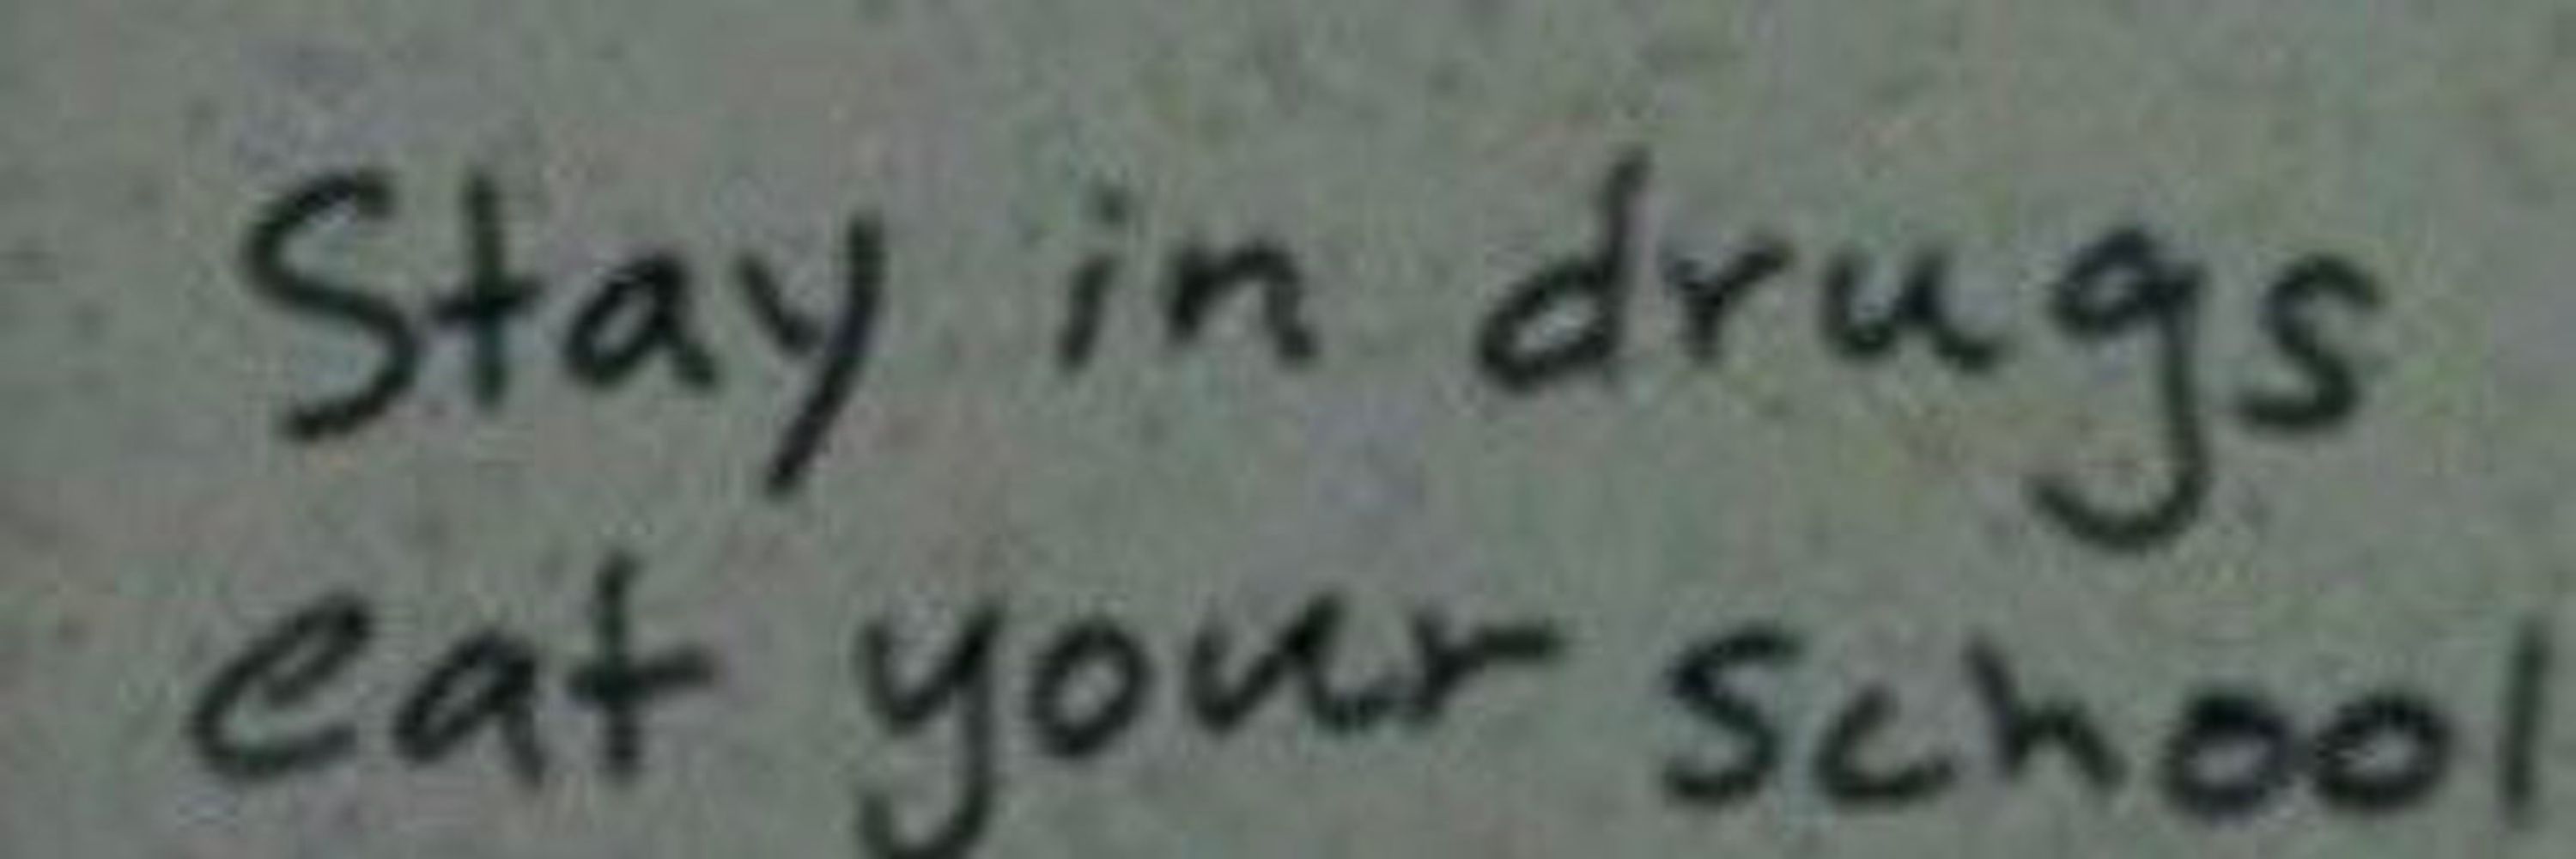 Stay in drugs
eat your school